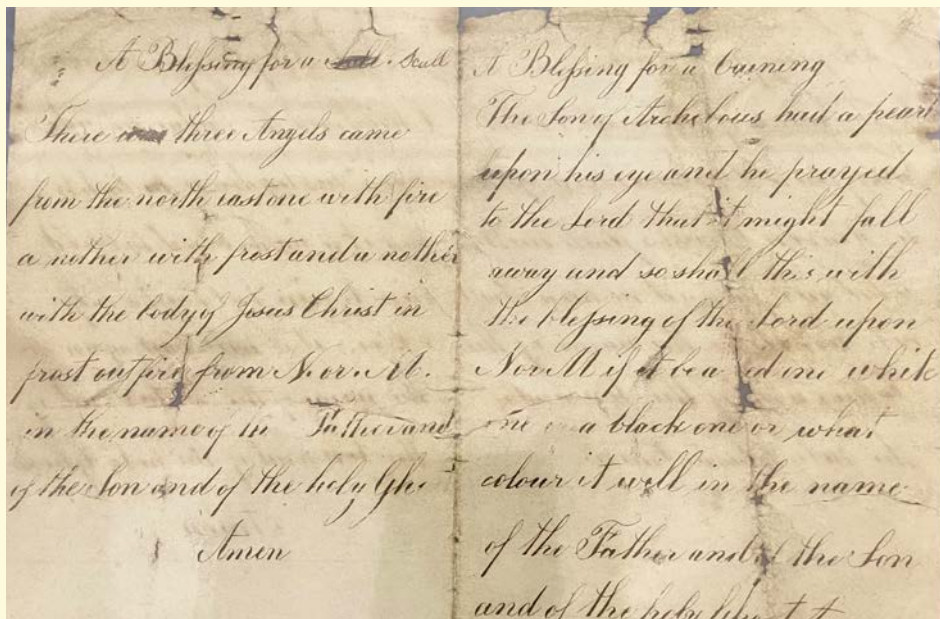 A Blessing for a Scall
There three Angels came
from the north east one with fire
a nother with frost and a nother
with the body of Jesus Christ in
frost out fire from N. or M.
in the name of the Father and
of the Son and of the holy Gh
Amen
A Blessing for a
The Son of Archelous had a pearl
upon his eye and he prayed
to the Lord that it might fall
away and so shall this with
the blessing of the Lord upon
N or M if it be a ed one white
one a black one or what
colour it well in the name
of the Father and of the Son
and of the holy Ghost